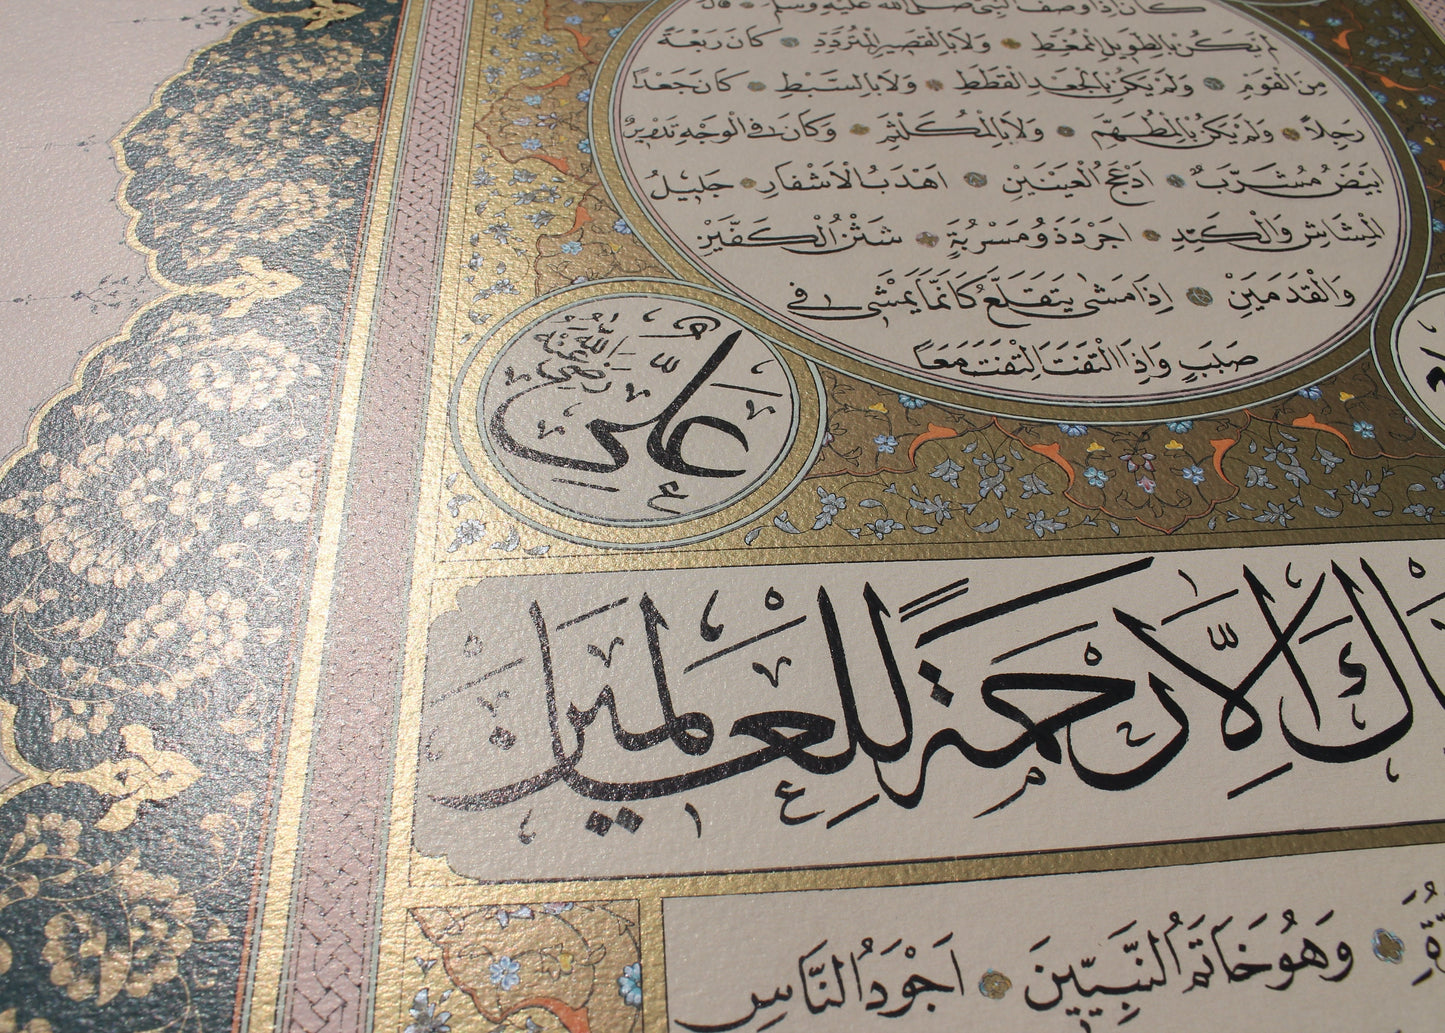 كان إذا وصف النبي صلى الله عليه وسلم قال
لم يكن بالطويل الممغط ولا بالقصير المتردد كان ربعة
من القوم ولم يكن بالجعد القطط ولا بالسبط كان جعدا
رجلا ولم يكن بالمطهم ولا بالمكلثم وكان في الوجه تدوير
ابيض مشرب ادعج العينين اهدب الاشفار جليل
المشاش والكتد اجرد ذو مسربة شثن الكفين
والقدمين اذا مشى يتقلع كانما يمشي في
صبب واذا التفت التفت معا
علي رضي الله عنه
ناك الا رحمة للعالمين
وهو خاتم النبيين اجود الناس